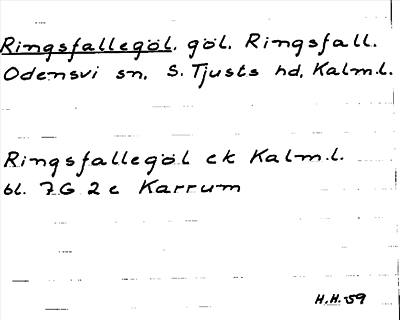 Ringsfallegöl, göl, Ringsfall.
Odensvi sn, S. Tjusts hd, Kalm.l.
Ringsfallegöl ek Kalm.l.
bl. 7G 2c Karrum
H.H.-59